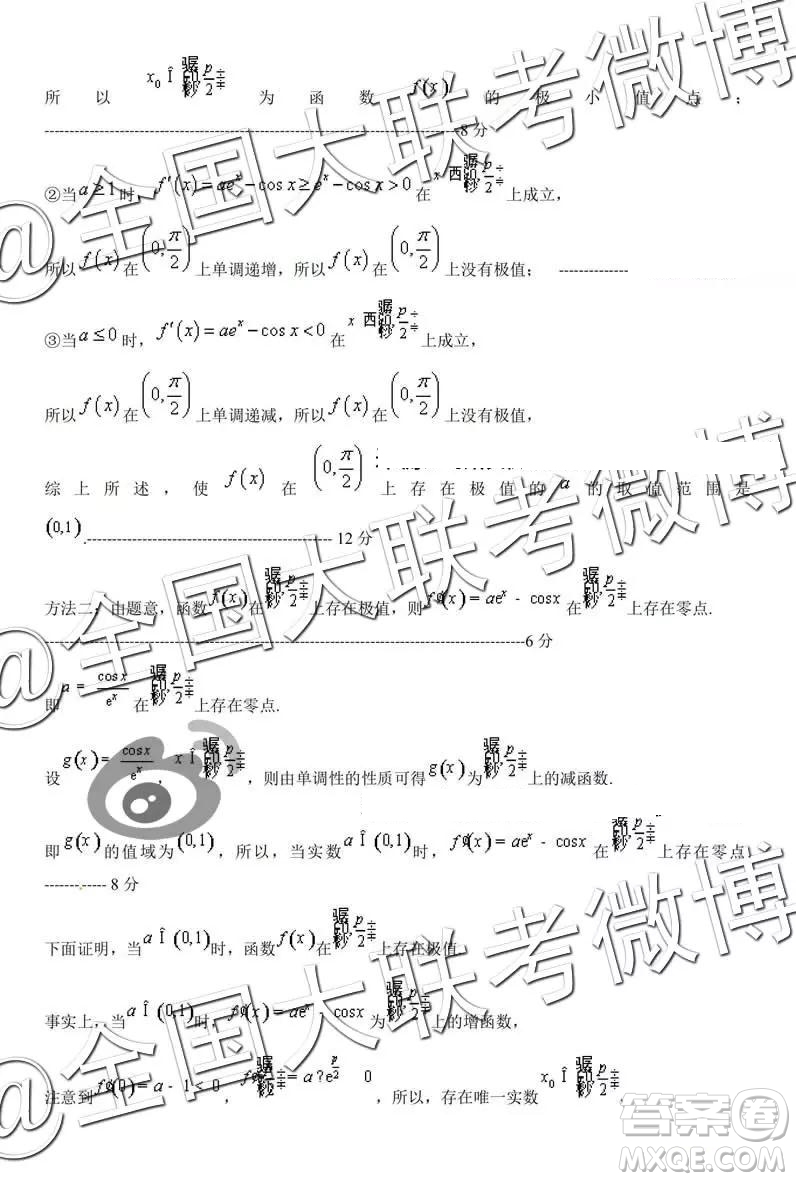 x₀ Î 骣琪0,琪桫 p/2
所以 为函数 f(x) 的极小值点；
8分
②当 a≥1 时，f'(x)=aeˣ-cos x≥eˣ-cos x>0 在 x 西 p/2 上成立，
所以 f(x) 在 (0,π/2) 上单调递增，所以 f(x) 在 (0,π/2) 上没有极值； --------------
③当 a≤0 时，f'(x)=aeˣ-cos x<0 在 x 西 p/2 上成立，
所以 f(x) 在 (0,π/2) 上单调递减，所以 f(x) 在 (0,π/2) 上没有极值，
综上所述，使 f(x) 在 (0,π/2) 上存在极值的 a 的取值范围是
(0,1).------------------------------------------------- 12分
方法二：由题意，函数 f(x) 在 p/2 上存在极值，则 f¢(x)=aeˣ - cosx 在 p/2 上存在零点.
6分
即 a = cosx/eˣ 在 p/2 上存在零点.
设 g(x)= cosx/eˣ，x Î p/2，则由单调性的性质可得 g(x) 为 p/2 上的减函数.
即 g(x) 的值域为 (0,1)，所以，当实数 a Î (0,1) 时，f¢(x)=aeˣ - cosx 在 p/2 上存在零点.
------------ 8分
下面证明，当 a Î (0,1) 时，函数 f(x) 在 p/2 上存在极值.
事实上，当 a Î (0,1) 时，f¢(x)=aeˣ - cosx 为 p/2 上的增函数，
注意到 f¢(0)=a - 1<0，p/2 = a ? e^(p/2) 0，所以，存在唯一实数 x₀ Î p/2，
@全国大联考微博
@全国大联考微博
@全国大联考微博
答案卷
MXQE.COM